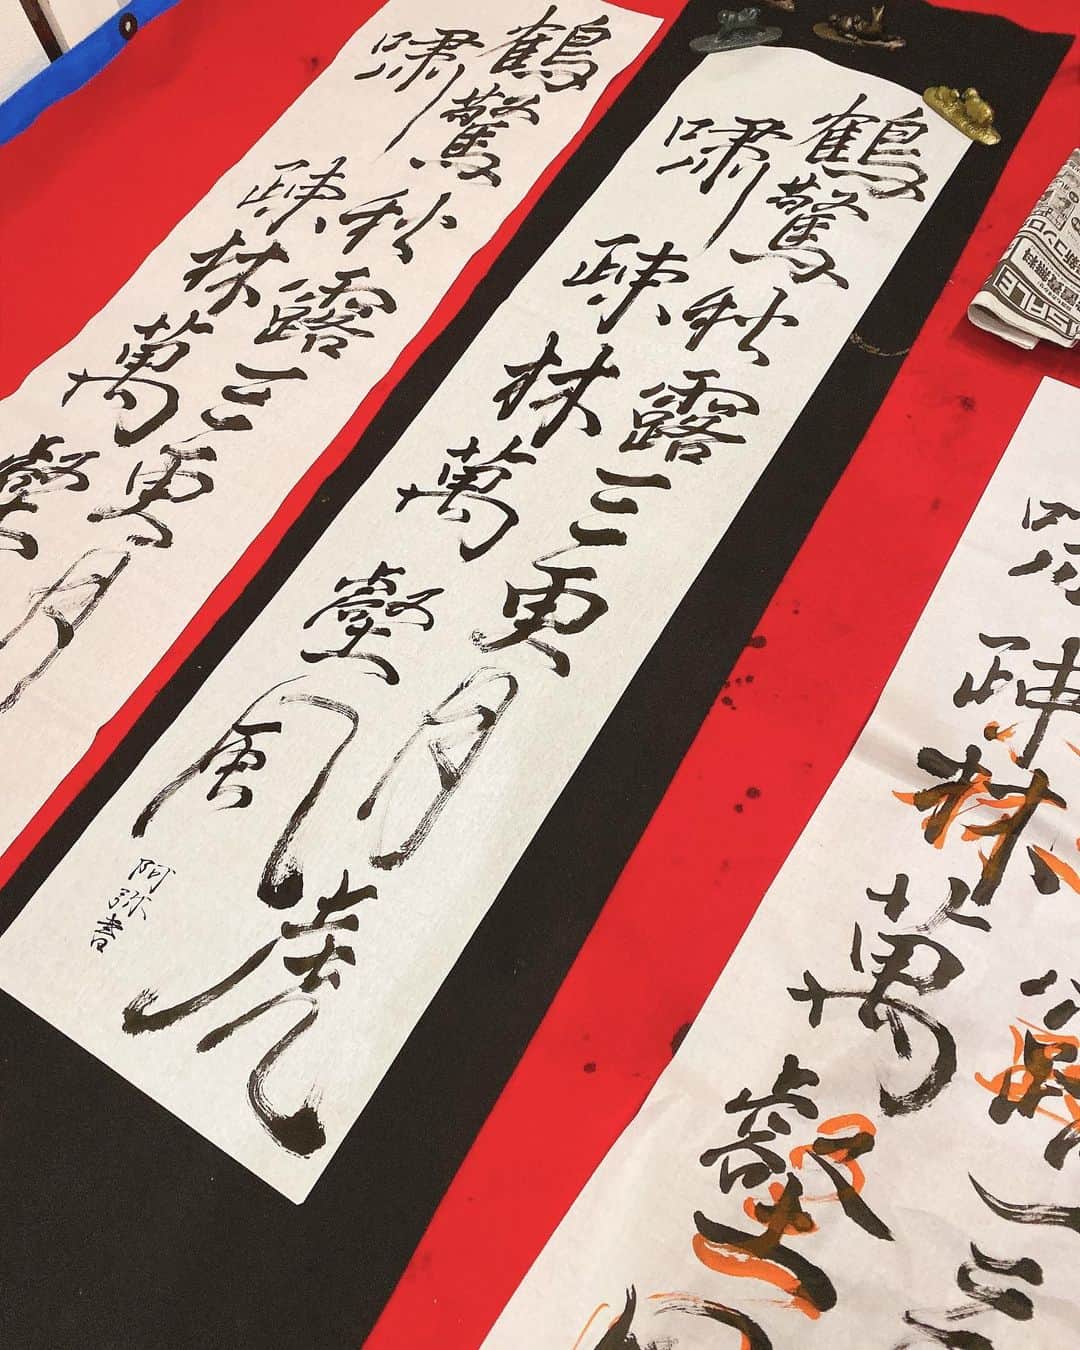 露三
嘯疎林萬壑
鶴驚秋露三更月虎
嘯疎林萬壑風
阿弥書
鶴驚秋露三更月
嘯疎林萬壑
SALE